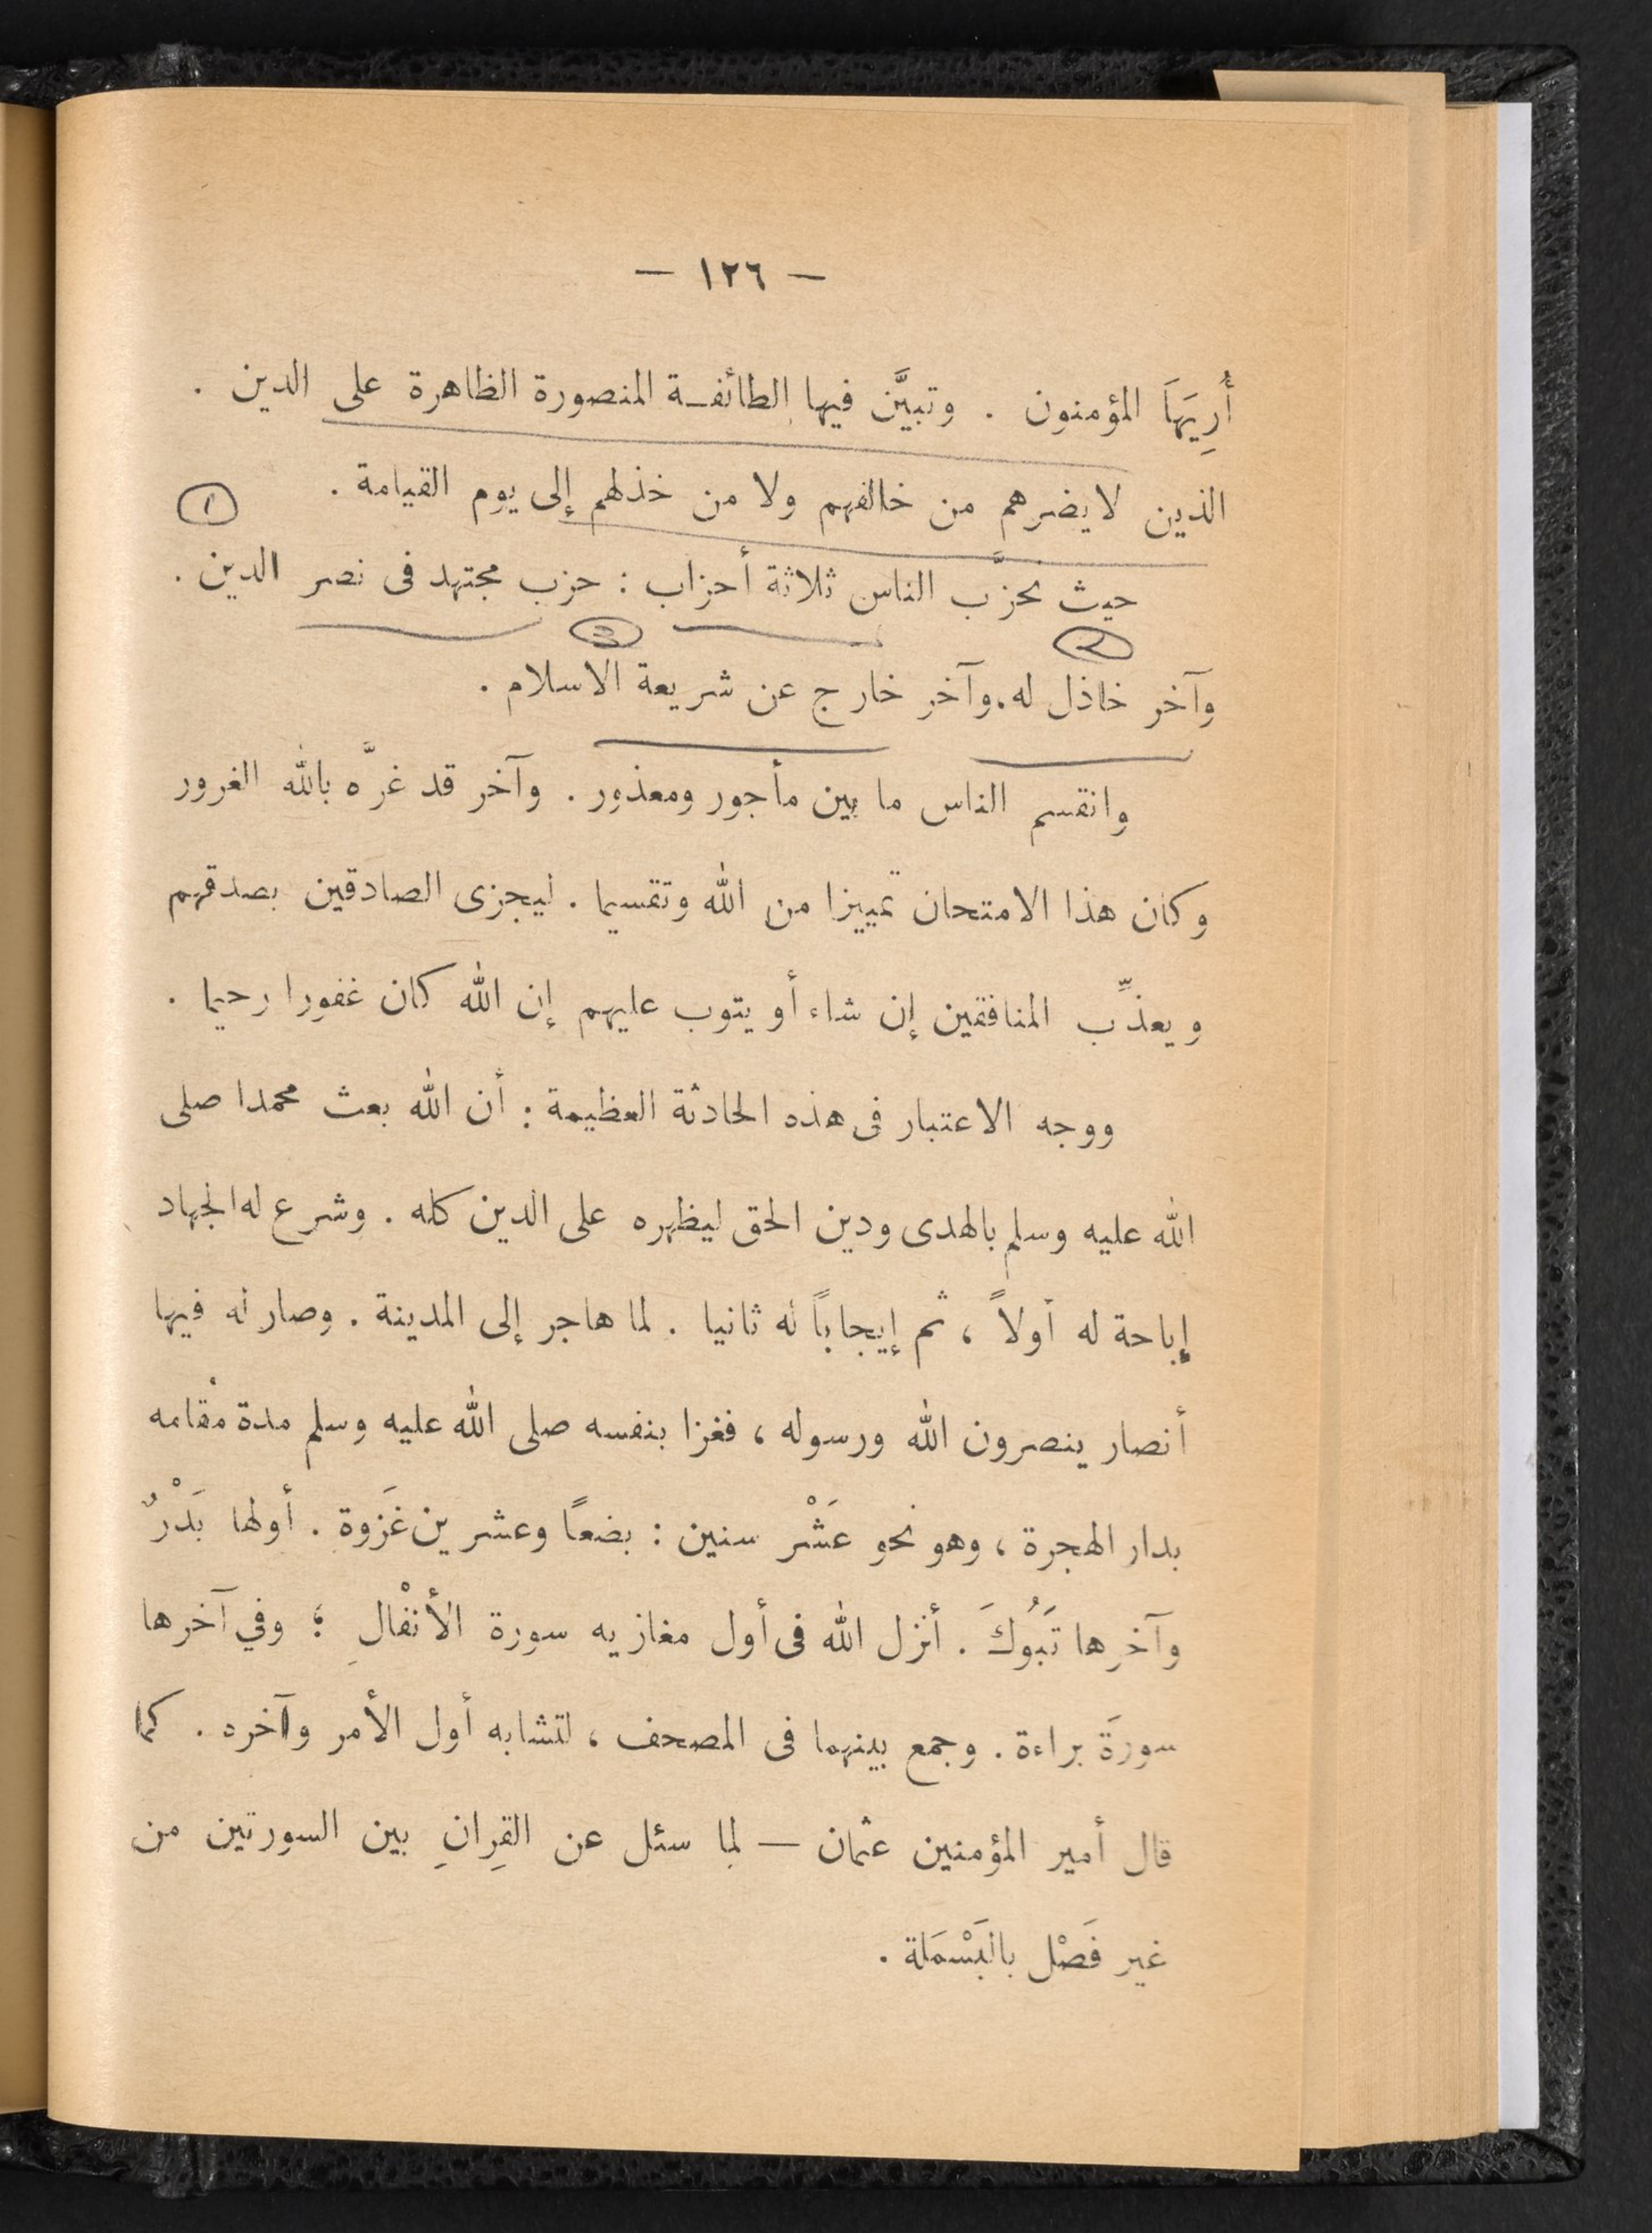 — ١٢٦ —
أُرِيَهَا المؤمنون . وتبيَّن فيها الطائفـة المنصورة الظاهرة على الدين .
الذين لا يضرهم من خالفهم ولا من خذلهم إلى يوم القيامة . ١
حيث تحزَّب الناس ثلاثة أحزاب : حزب مجتهد فى نصر الدين .
٢ 3
وآخر خاذل له . وآخر خارج عن شريعة الاسلام .
وانقسم الناس ما بين مأجور ومعذور . وآخر قد غرَّه بالله الغرور
وكان هذا الامتحان تمييزا من الله وتقسيما . ليجزى الصادقين بصدقهم
ويعذِّب المنافقين إن شاء أو يتوب عليهم إن الله كان غفورا رحيما .
ووجه الاعتبار فى هذه الحادثة العظيمة : أن الله بعث محمدا صلى
الله عليه وسلم بالهدى ودين الحق ليظهره على الدين كله . وشرع له الجهاد
إباحة له أولاً ، ثم إيجاباً له ثانيا . لما هاجر إلى المدينة . وصار له فيها
أنصار ينصرون الله ورسوله ، فغزا بنفسه صلى الله عليه وسلم مدة مُقامه
بدار الهجرة ، وهو نحو عَشْر سنين : بضعاً وعشرين غَزوة . أولها بَدْرٌ
وآخرها تَبُوكَ . أنزل الله فى أول مغازيه سورة الأنْفالِ ؛ وفي آخرها
سورَة براءة . وجمع بينهما فى المصحف ، لتشابه أول الأمر وآخره . كما
قال أمير المؤمنين عثمان — لما سئل عن القِرانِ بين السورتين من
غير فَصْل بالبَسْمَلة .